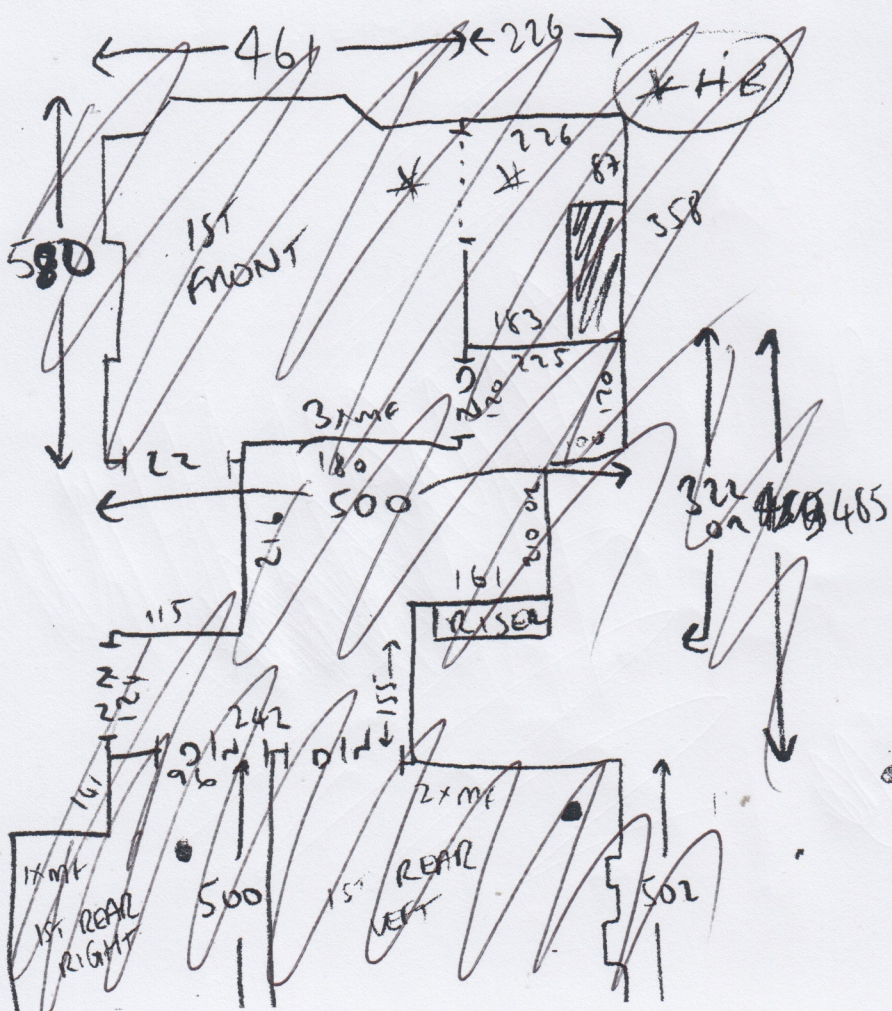 461
226
* HB
226
87
358
580
1ST
FRONT
183
225
120
120
3xMF
122
180
500
216
210
161
RISER
322
485
115
155
242
D IN
D IN
96
141
2xMF
1xMF
1ST REAR
RIGHT
500
1ST REAR
LEFT
502